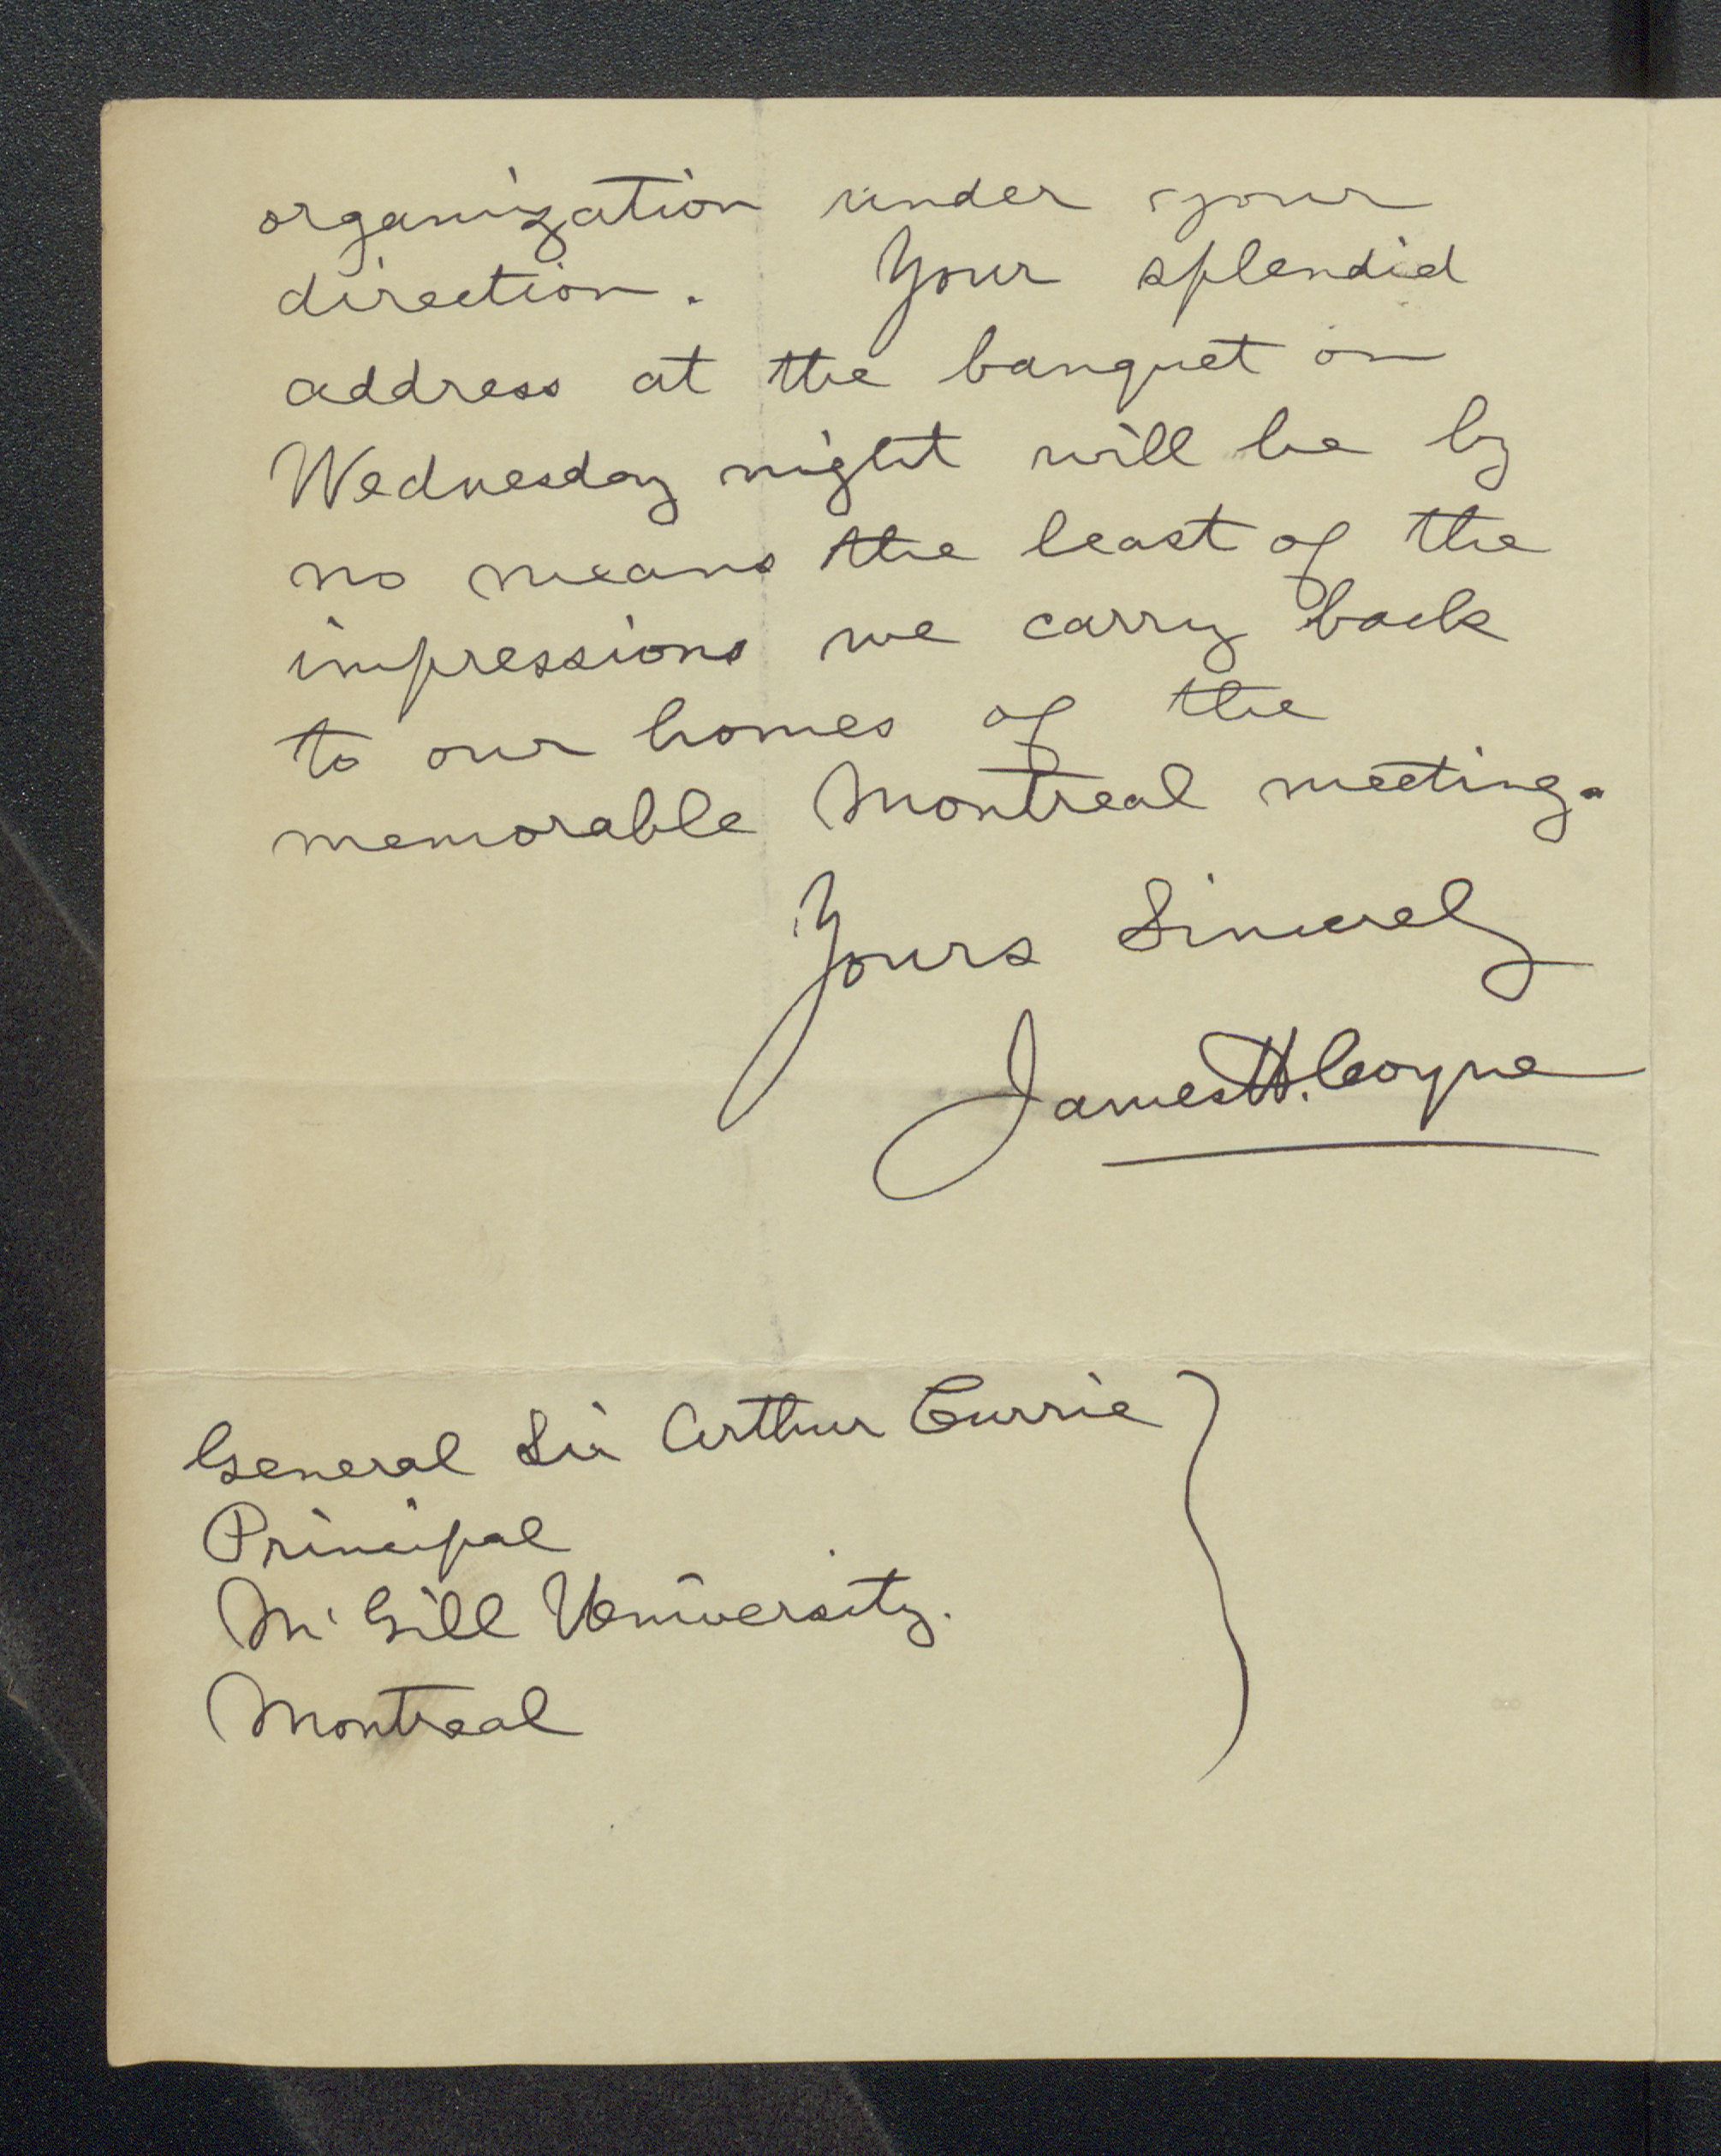 organization under your
direction. Your splendid
address at the banquet on
Wednesday night will be by
no means the least of the
impressions we carry back
to our homes of the
memorable Montreal meeting.
Yours Sincerely
James H. Coyne
General Sir Arthur Currie
Principal
McGill University.
Montreal